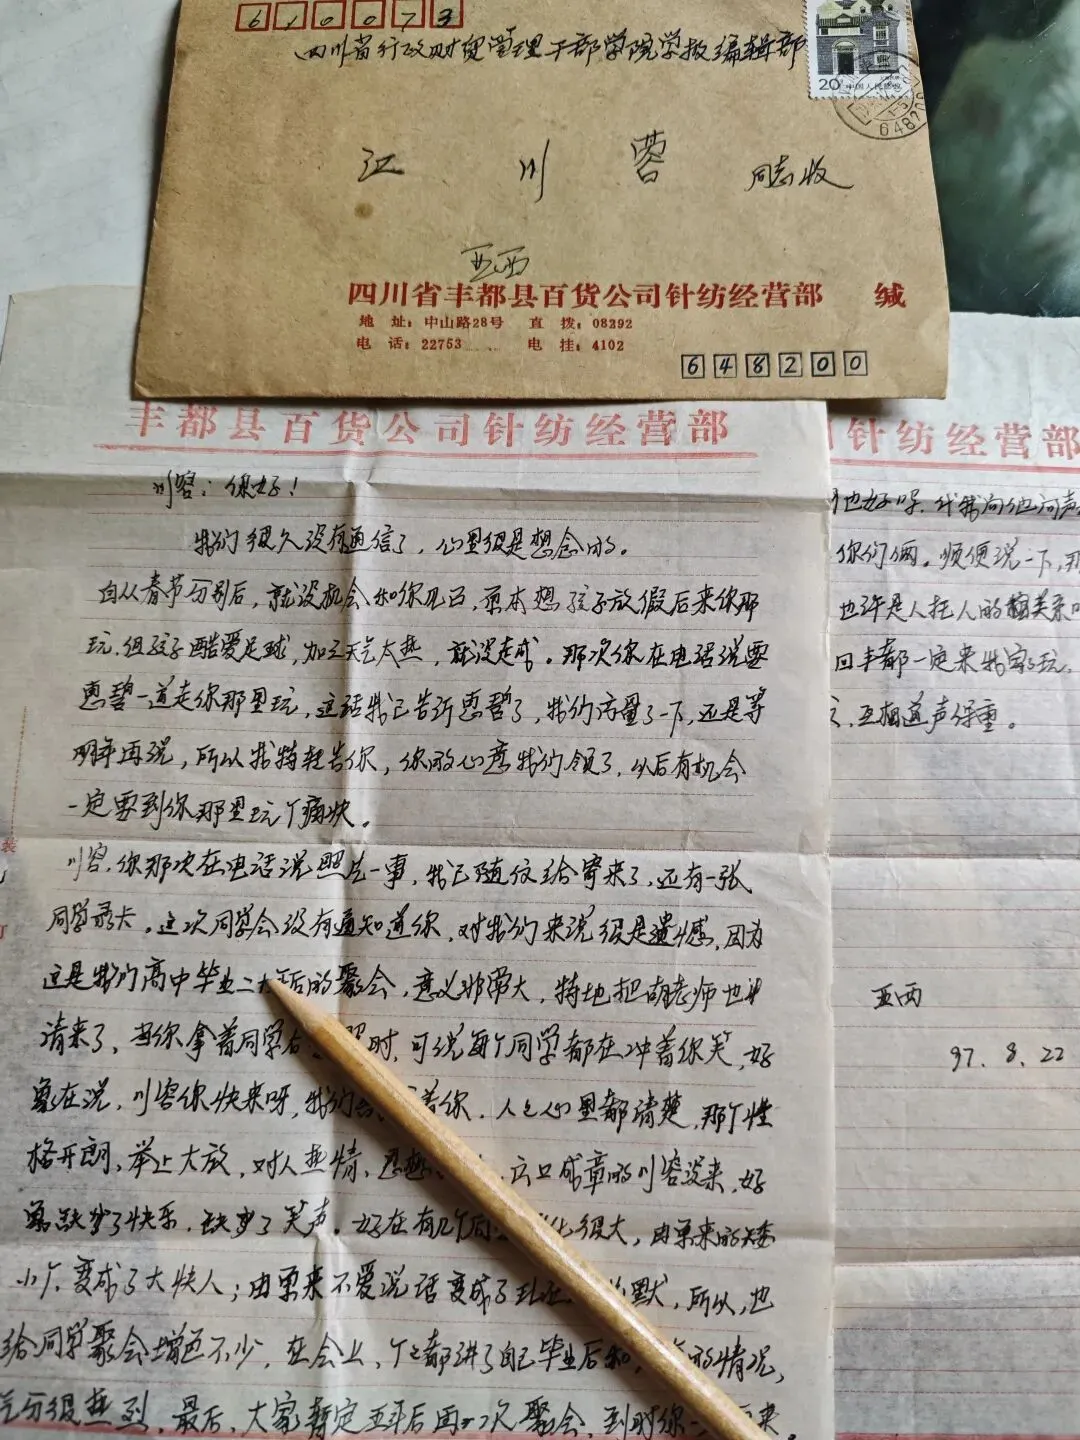 610073
四川省行政财贸管理干部学院学报编辑部
20分 中国人民邮政
648200
江川蓉 同志收
亚西
四川省丰都县百货公司针纺经营部 缄
地址：中山路28号 直拨：08292
电话：22753 电挂：4102
648200
丰都县百货公司针纺经营部
川容：你好！
我们很久没有通信了，心里很是想念的。
自从春节分别后，就没机会和你见面，原本想孩子放假后来你那
玩，但孩子酷爱足球，加之天气太热，就没走成。那次你在电话说要
惠碧一道走你那里玩，这话我已告诉惠碧了，我们商量了一下，还是等
明年再说，所以我特转告你，你的心意我们领了，以后有机会
一定要到你那里玩个痛快。
川容，你那次在电话说照片一事，我已随信给寄来了，还有一张
同学录卡。这次同学会没有通知道你，对我们来说很是遗憾，因为
这是我们高中毕业二十年后的聚会，意义非常大，特地把胡老师也
请来了，当你拿着同学 照时，可说每个同学都在冲着你笑，好
象在说，川容你快来呀，我们 着你，人人心里都清楚，那个性
格开朗、举止大放，对人热情、 、出口成章的川容没来，好
象缺少了快乐，缺少了笑声。好在有几个同 化很大，由原来的矮
小个，变成了大快人；由原来不爱说话变成了 默，所以，也
给同学聚会增色不少，在会上，个个都讲了自己毕业后和 的情况，
气分很热烈，最后，大家暂定五年后再 一次聚会，到时你一 来。
针纺经营部
也好吗，代我向他问声
你们俩。顺便说一下，那
也许是人托人的关系
回丰都一定来我家玩，
，互相道声保重。
亚西
97.8.22